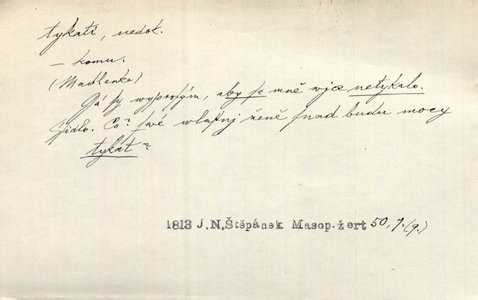 tykati, nedok.
— komu.
(Madlenka)
Já sy wyprosým, aby se mně wjce netykalo.
Žídlo. Co? swé wlastnj ženě snad budu mocy
tykat?
1813 J.N.Štěpánek Masop.žert 50, 7. (9.)